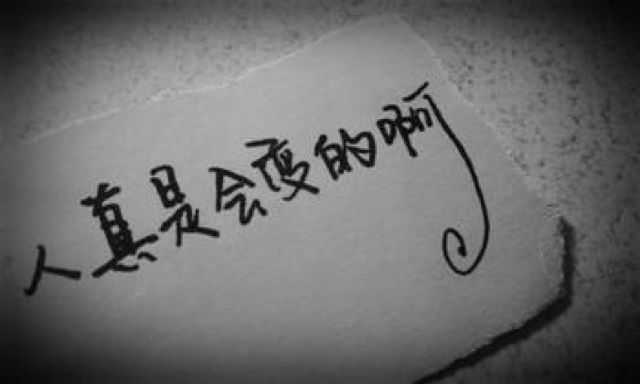 人真是会变的啊